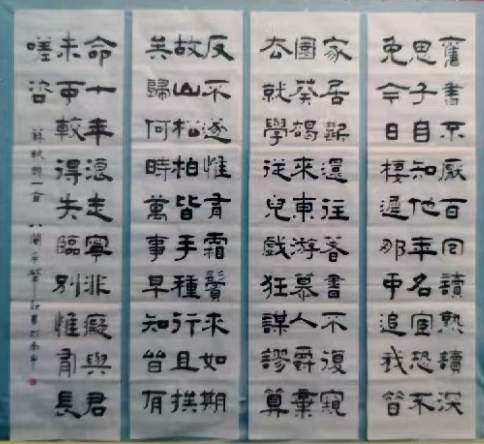 舊書不厭百回讀熟讀深
思子自知他年名宦恐不
免今日棲遲那可追我昔
家居斷還往著書不復窺
園葵碣來東游慕人爵棄
去就學從兒戲狂謀謬算
反不遂惟有霜鬢來如期
故山松柏皆手種行且拱
矣歸何時萬事早知皆有
命十年浪走寧非癡與君
未可較得失臨別惟有長
嗟咨
蘇軾詩一首